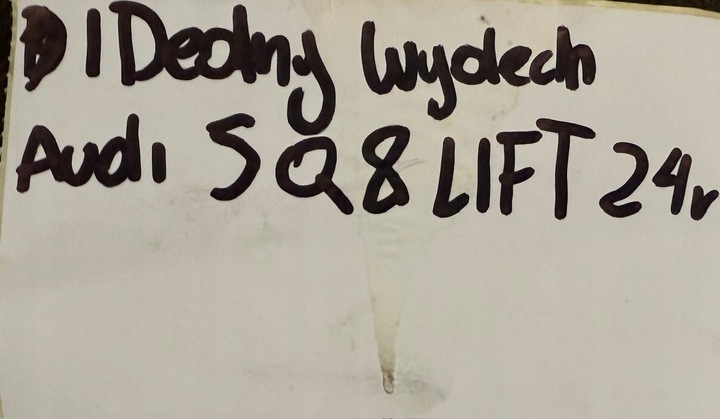 IDealny wydech
Audi SQ8 LIFT 24r